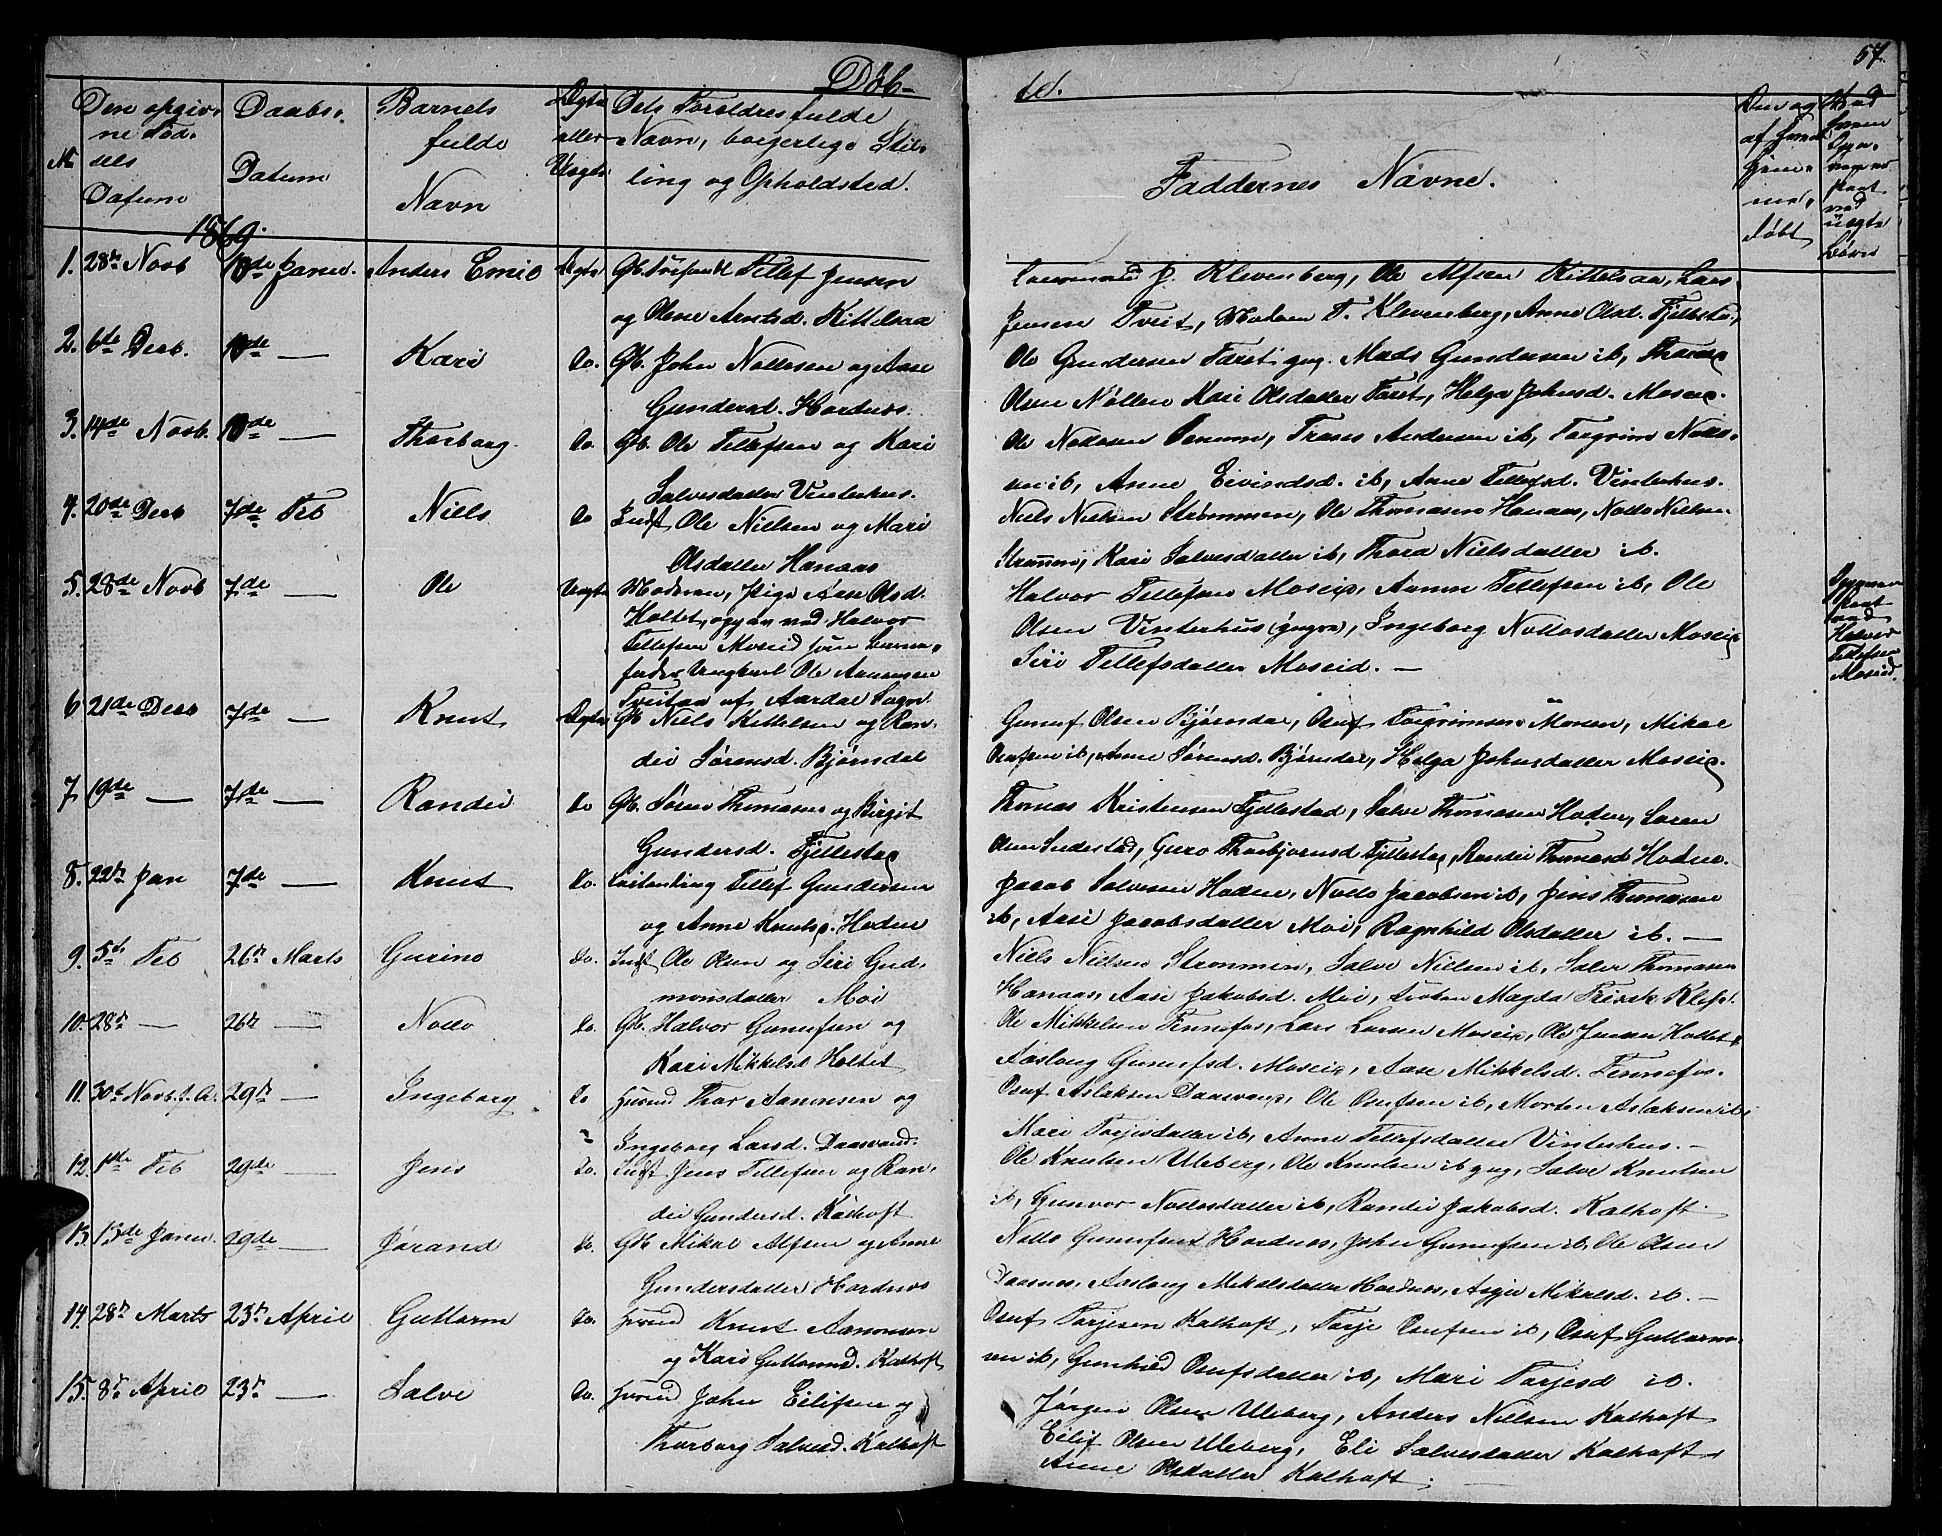 Døb-
te.
57.
№
Den opgiv-
ne Fød-
sels
Datum
Daabs-
Datum
Barnets
fulde
Navn
Ægte
eller
Uægte
Dets Forældres fulde
Navn, borgerlige Stil-
ling og Opholdsted.
Faddernes Navne.
Om og
af hvem
hjem-
me-
døbt
1869.
1. 28de Novb 10de Janu. Anders Emil Ægte Gb. Tellef Jensen
og Olene Arntsd. Kittelsaa
J. Klevenberg, Ole Alfsen Kittelsaa, Lars
Jensen Tveit, T. Klevenberg, Anne Olsd. Fjellestad,
2. 6te Decb. 10de — Kari Do. Gb. John Nollosen og Aase
Gundersd. Hordnes.
Ole Gundersen Faret gug. Mads Gundersen ib, Thomas
Olsen Nøllen Kari Olsdatter Faret, Helga Johnsd. Moseid.
3. 14de Novb. 10de — Thorborg. Do. Gb. Ole Tellefsen og Kari
Salvesdatter Vinterhus.
Ole Nollosen Senum, Andersen ib, Torgrim Nollo-
sen ib, Anne Eivindsd. ib, Anne Tellefsd. Vinterhus.
4. 20de Decb 7de Feb Niels Do Indst. Ole Nielsen og Mari
Olsdatter Hanaas
Niels Nielsen Strømmen, Ole Thomasen Hanaas, Nollo Nielsen
Strømmen, Kari Salvesdatter ib, Thora Nielsdatter ib.
5. 28de Novb 7de — Ole Uægte Moderen, Pige Aase Olsd.
Holtet, ved Halvor
Tellefsen Moseid som Barne-
fader Ungkarl Ole Aanensen
Treitan af Aardal Sogn.
Halvor Tellefsen Moseid, Aanen Tellefsen ib, Ole
Olsen Vinterhus (gugn), Ingeborg Nollosdatter Moseid
Siri Tellefsdatter Moseid. —
Halvor
Tellefsen
Moseid.
6 21de Decb 7de — Knut Ægte Gb Niels Kittelsen og Ran-
dei Sørensd. Bjørndal
Gunuf Olsen Bjørndal, Osuf Torgrimsen Monen, Mikal
Osufsen ib, Anne Sørensd. Bjørndal, Helga Johnsdatter Moseid.
7 19de — 7de — Randei Do Gb. Søren Thomasen og Birgit
Gundersd. Fjellestad
Thomas Kristensen Fjellestad, Salve Thomasen Hodne, Søren
Olsen, Guro Thorbjørnsd. Fjellestad, Randei Thomasd Hodne.
8. 22de Jan 7de — Knut Do. Tellef Gundersen
og Anne Knutsd. Hodne
Jacob Salvesen Hodne, Nollo Jacobsen ib, Jens Thomasen
ib, Aase Jacobsdatter Moi, Ragnhild Olsdatter ib. —
9. 5te Feb 26de Marts Gurine Do. Indst Ole Olsen og Siri Gud-
monsdatter Moi
Niels Nielsen Strømmen, Salve Nielsen ib, Salve Thomasen
Hanaas, Aase Jakobsd. Moi, Magda
10. 28de — 26de — Nollo Do. Gb. Halvor Gunufsen og
Kari Mikkelsd Holtet
Ole Mikkelsen Fennefos, Lars Larsen Moseid, Ole Jensen Holtet,
Aaslaug Gunufsd. Moseid, Aase Mikkelsd. Fennefos.
11. 30te Novb. f. A. 29de — Ingeborg Do Thor Aanonsen og
Ingeborg Larsd. Daasvand.
Osuf Aslaksen Daasvand, Ole Osufsen ib, Morten Aslaksen ib,
Mari Torjesdatter ib, Anne Tellefsdatter Vinterhus. —
12. 1ste Feb 29de — Jens Do. Indst Jens Tellefsen og Ran-
dei Gundersd. Kalhoft
Ole Knutsen Uleberg, Ole Knutsen ib gug, Salve Knutsen
ib, Gunvor Nollosdatter ib, Randei Jakobsd. Kalhoft.
13. 13de Janu. 29de — Jørand Do. Gb Mikal Alfsen og Anne
Gundersdatter Hordnes
Nollo Gunufsen Hordnes, John Gunufsen ib, Ole Olsen
Daasnes, Aaslaug Mikalsdatter Hordnes, Mikalsd. ib. —
14. 28de Marts 23de April Guttorm Do. Knut Aanonsen
og Kari Guttormsd. Kalhoft
Osuf Torjesen Kalhoft, Torje Osufsen ib, Osuf Guttorm-
sen ib, Gunhild Osufsdatter ib, Mari Torjesd ib.
15. 8de April 23de — Salve Do. John Eilifsen og
Thorborg Salvesd. Kalhoft
Jørgen Olsen Uleberg, Anders Nielsen Kalhoft
Eilif Olsen Uleberg, Eli Salvesdatter Kalhoft,
Anne Olsdatter Kalhoft.